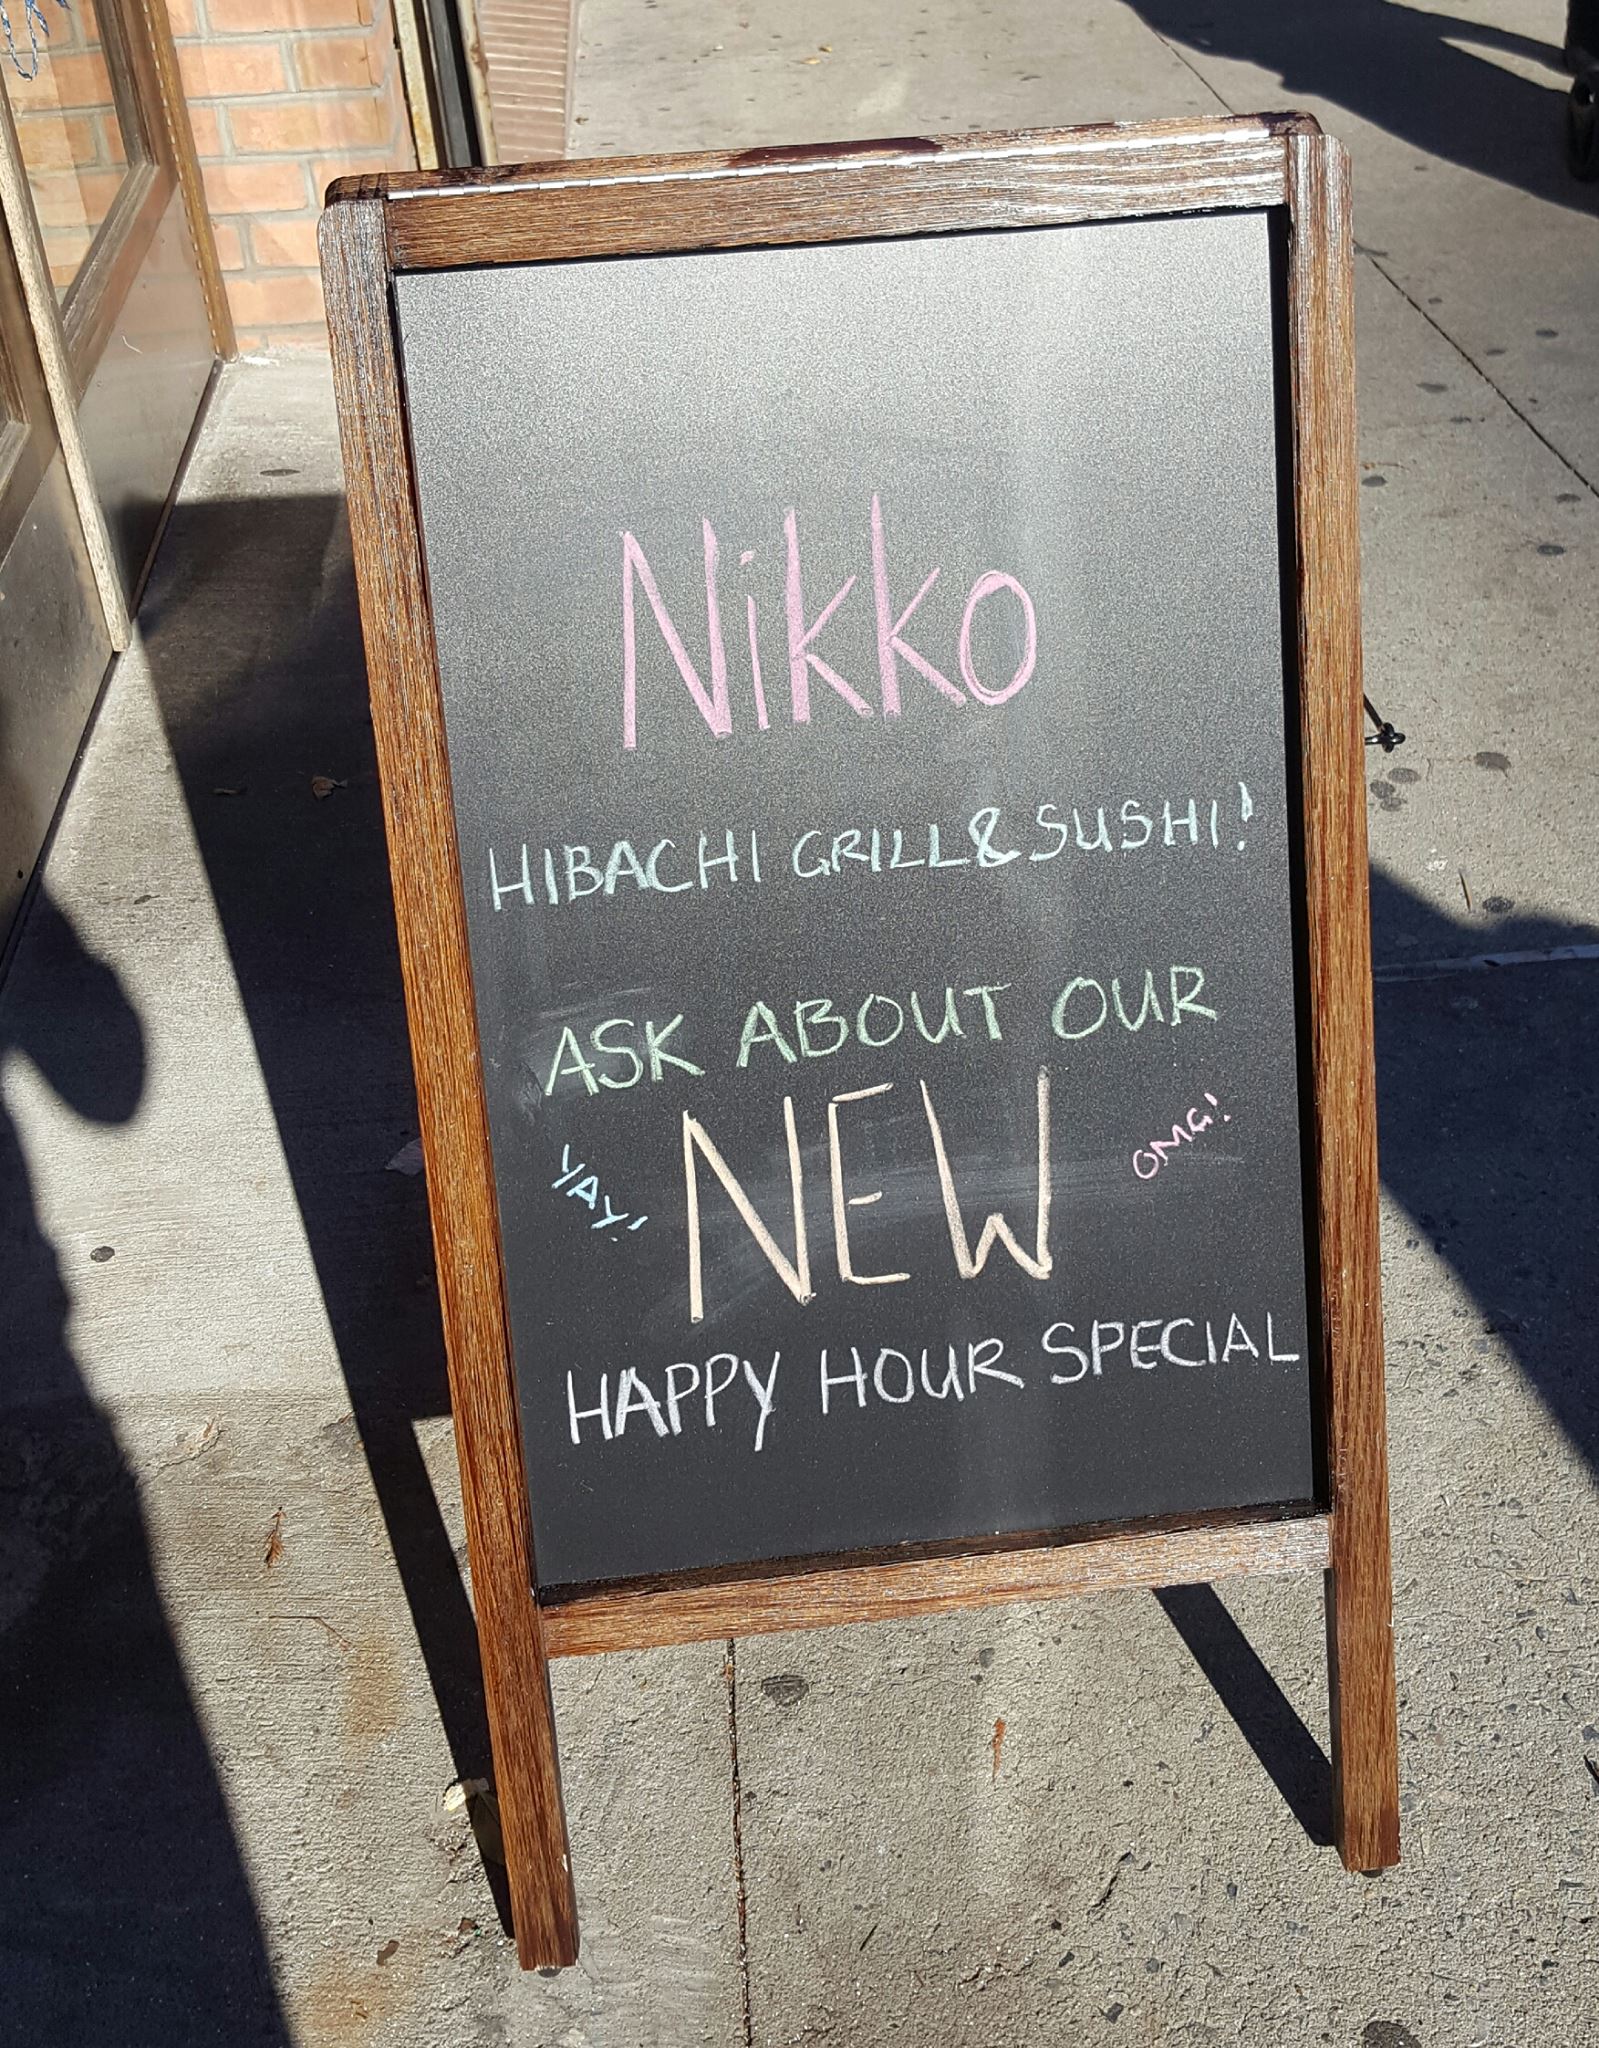 Nikko
HIBACHI GRILL & SUSHI!
ASK ABOUT OUR
YAY!
NEW
OMG!
HAPPY HOUR SPECIAL